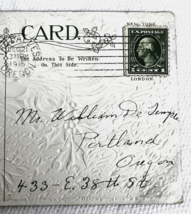 CARD.
NEW YORK
The Address to Be Written
On This Side.
U.S. POSTAGE
LONDON
Mr. William De Temple
Portland
Oregon
433-E. 38th St